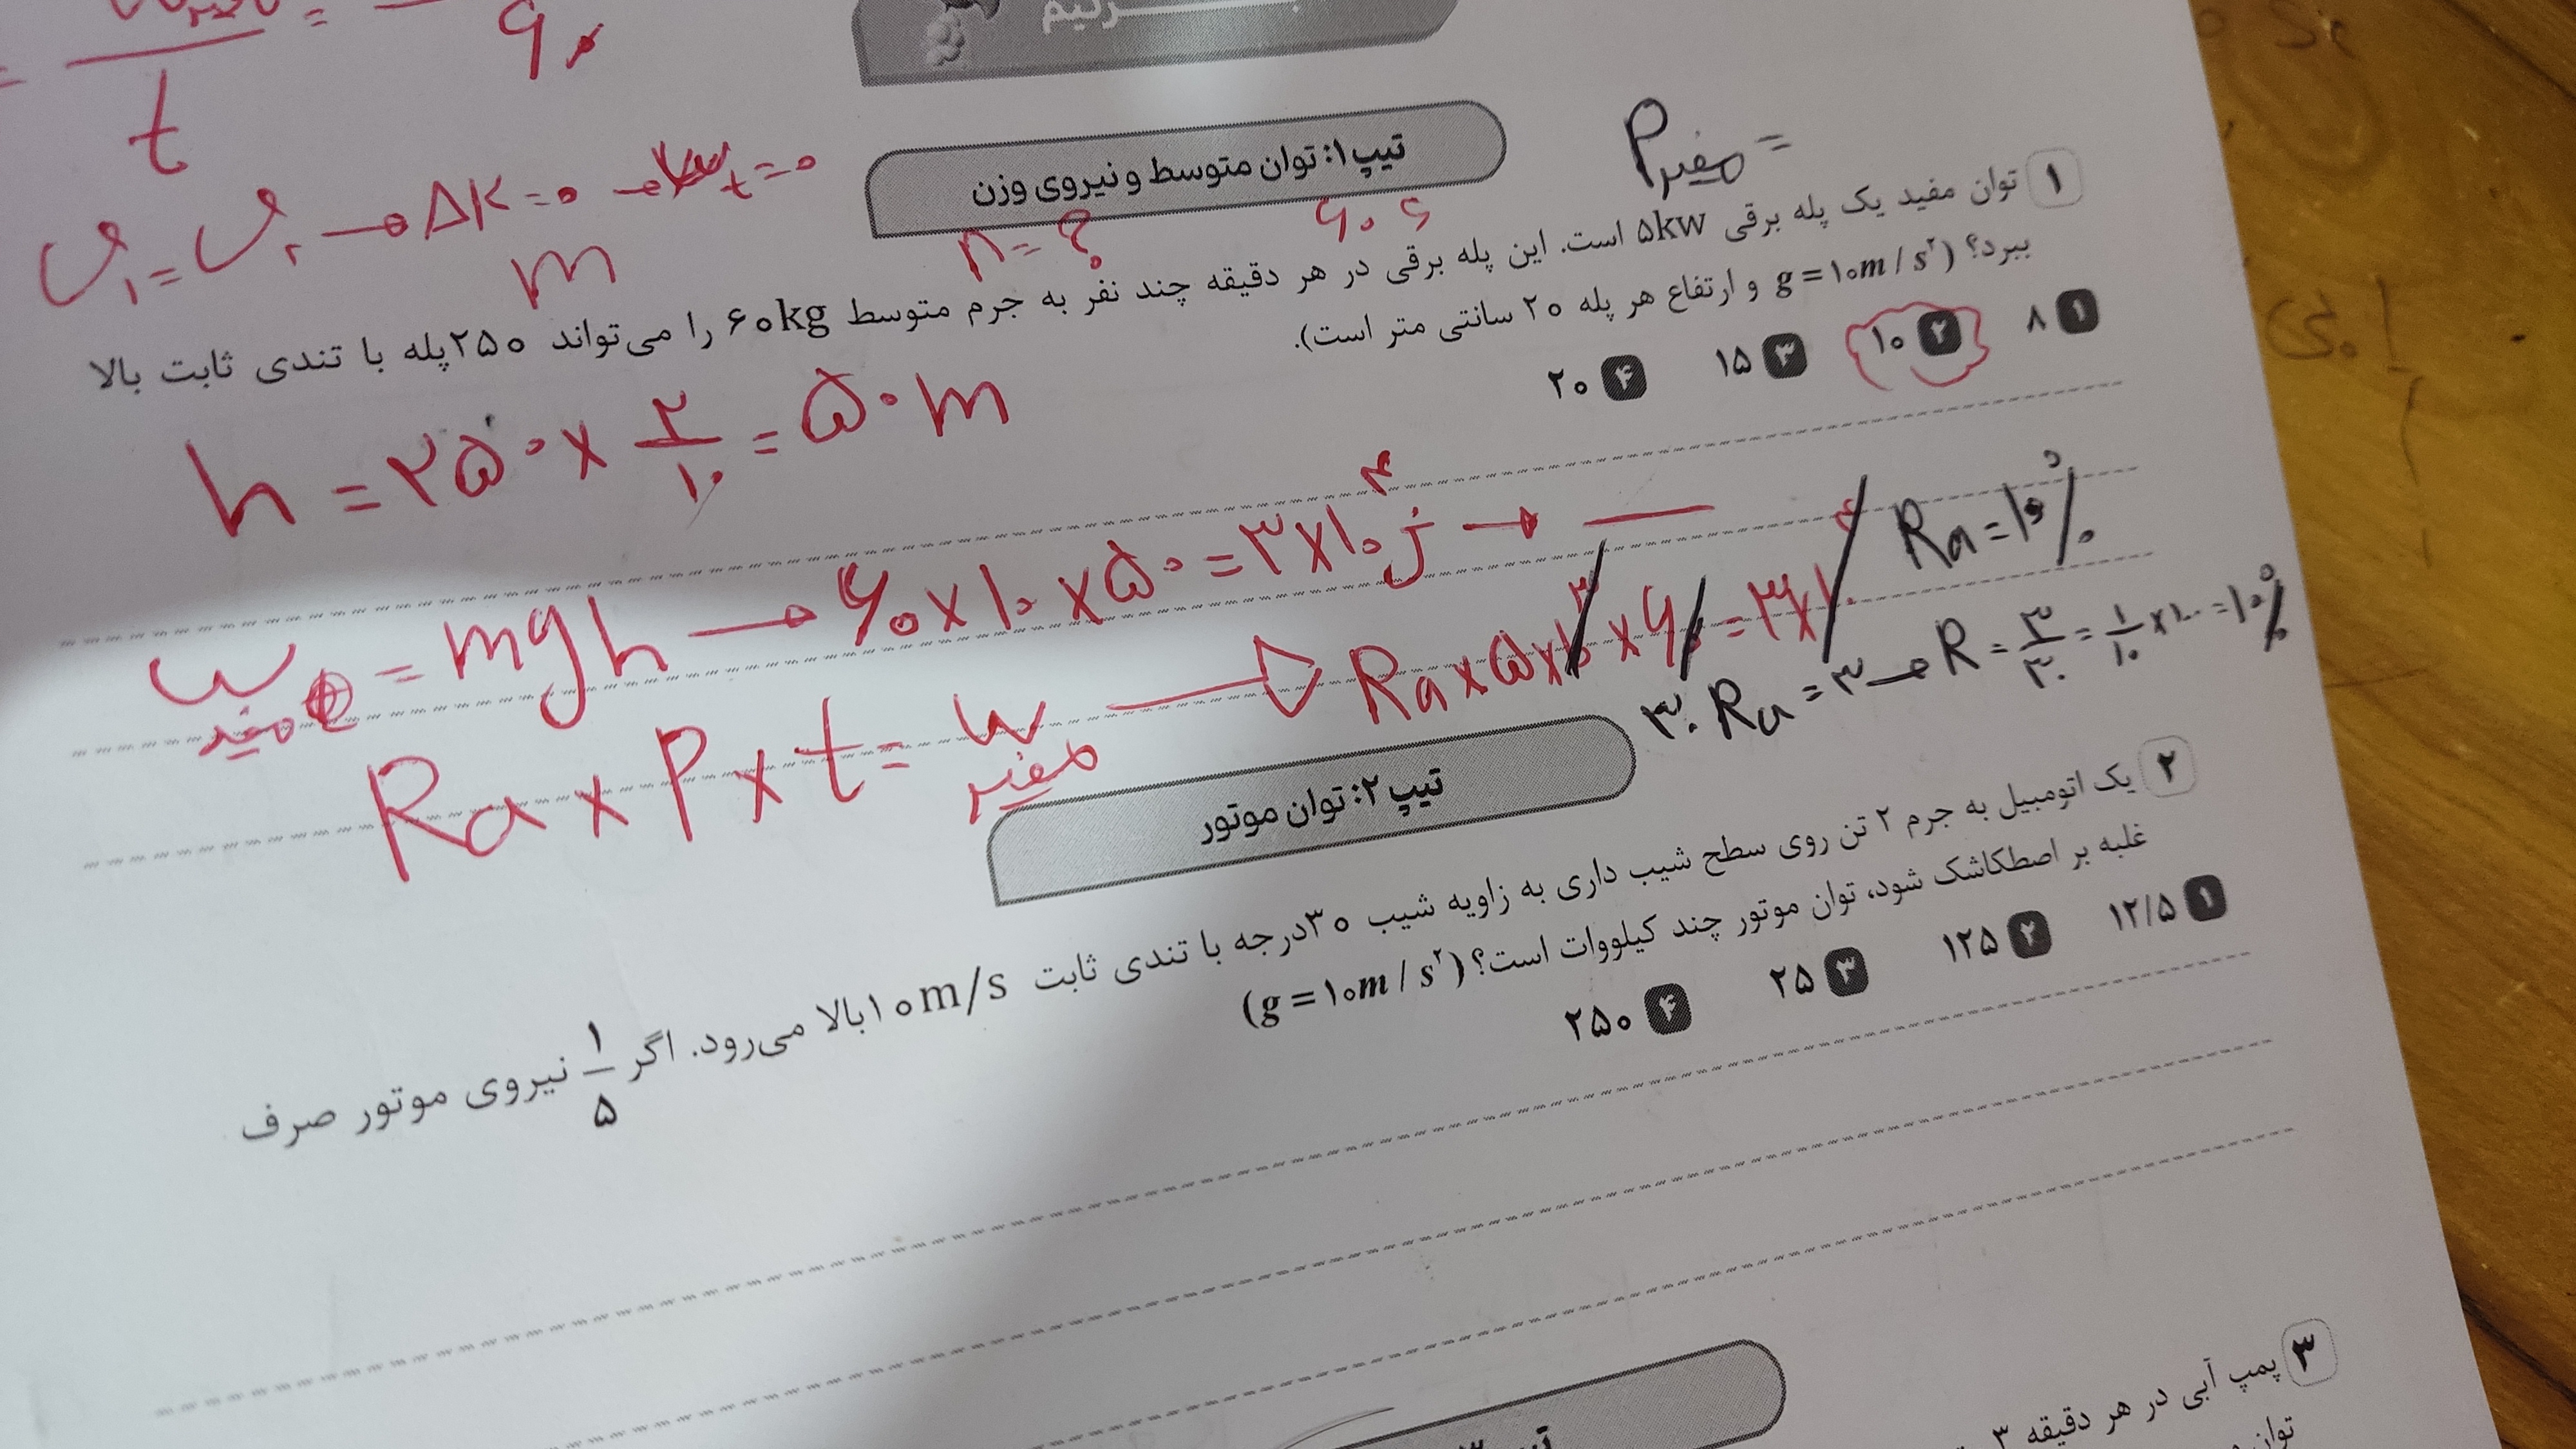 t
۶۰
تیپ ۱: توان متوسط و نیروی وزن
P مفید =
v₁ = v₂ → ΔK = ۰ → W t = ۰
m
n = ?
۶۰ s
۱ توان مفید یک پله برقی ۵kw است. این پله برقی در هر دقیقه چند نفر به جرم متوسط ۶۰kg را می‌تواند ۲۵۰ پله با تندی ثابت بالا
ببرد؟ (g = ۱۰m / s² و ارتفاع هر پله ۲۰ سانتی متر است).
۱ ۸ ۲ ۱۰ ۳ ۱۵ ۴ ۲۰
h = ۲۵۰ × ۲/۱۰ = ۵۰ m
W مفید = mgh → ۶۰ × ۱۰ × ۵۰ = ۳ × ۱۰⁴ j →
Ra × P × t = W مفید → Ra × ۵ × ۱۰³ × ۶۰ = ۳ × ۱۰⁴
Ra = ۱۰%
۳۰ Ra = ۳ → R = ۳/۳۰ = ۱/۱۰ × ۱۰۰ = ۱۰%
تیپ ۲: توان موتور
۲ یک اتومبیل به جرم ۲ تن روی سطح شیب داری به زاویه شیب ۳۰ درجه با تندی ثابت ۱۰m/s بالا می‌رود. اگر ۱/۵ نیروی موتور صرف
غلبه بر اصطکاشک شود، توان موتور چند کیلووات است؟ (g = ۱۰m / s²)
۱ ۱۲/۵ ۲ ۱۲۵ ۳ ۲۵ ۴ ۲۵۰
۳ پمپ آبی در هر دقیقه ۳
توان